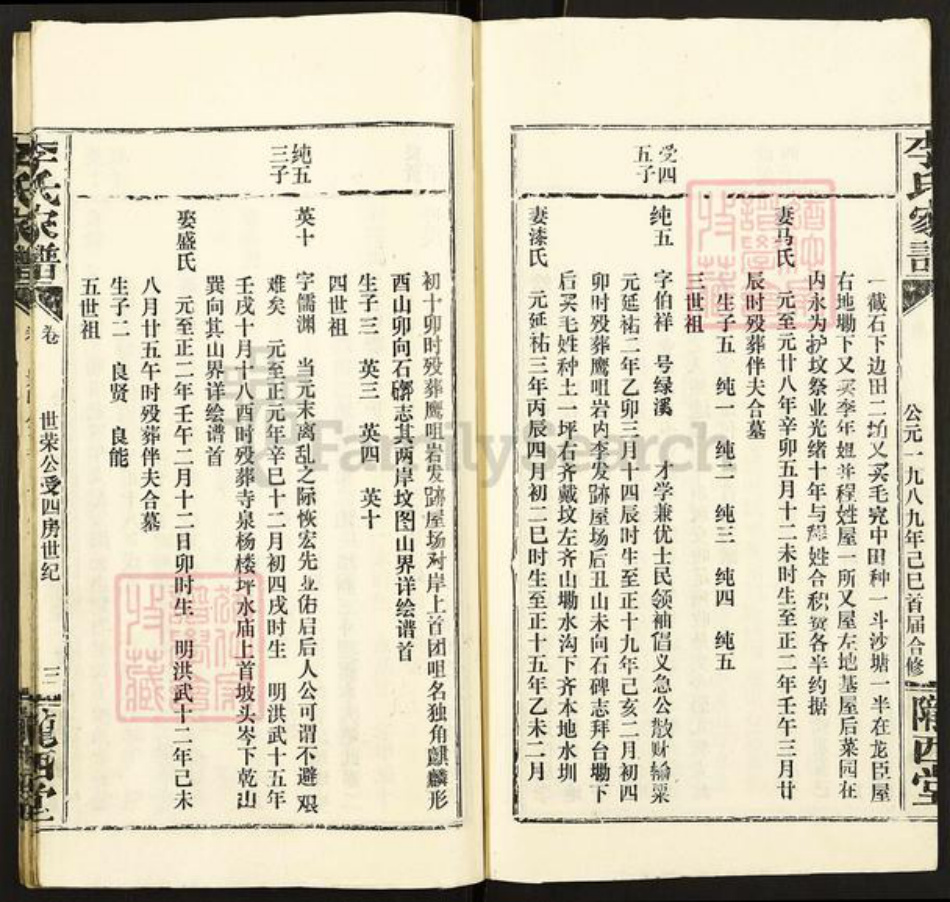 李氏家谱
公元一九八九年己巳首届合修
陇西堂
一截石下边田二坵又买毛完中田种一斗沙塘一半在龙臣屋
右地墈下又买李年妞并程姓屋一所又屋左地基屋后菜园在
内永为护坟祭业光绪十年与程姓合积赀各半约据
妻马氏 元至元廿八年辛卯五月十二未时生至正二年壬午三月廿
辰时殁葬伴夫合墓
生子五 纯一 纯二 纯三 纯四 纯五
三世祖
受四
五子
纯五 字伯祥 号绿溪 才学兼优士民领袖倡义急公散财输粟
元延祐二年乙卯三月十四辰时生至正十九年己亥二月初四
卯时殁葬鹰咀岩内李发跡屋场后丑山未向石碑志拜台墈下
后买毛姓种土一坪右齐戴坟左齐山墈水沟下齐本地水圳
妻漆氏 元延祐三年丙辰四月初二巳时生至正十五年乙未二月
初十卯时殁葬鹰咀岩发跡屋场对岸上首团咀名独角麒麟形
酉山卯向石磜志其两岸坟图山界详绘谱首
生子三 英三 英四 英十
四世祖
纯五
三子
英十 字儒渊 当元末离乱之际恢宏先业佑启后人公可谓不避艰
难矣 元至正元年辛巳十二月初四戌时生 明洪武十五年
壬戌十月十八酉时殁葬寺泉杨楼坪水庙上首坡头岑下乾山
巽向其山界详绘谱首
娶盛氏 元至正二年壬午二月十二日卯时生 明洪武十二年己未
八月廿五午时殁葬伴夫合墓
生子二 良贤 良能
五世祖
李氏家谱
卷 世荣公受四房世纪 三
陇西堂
FamilySearch